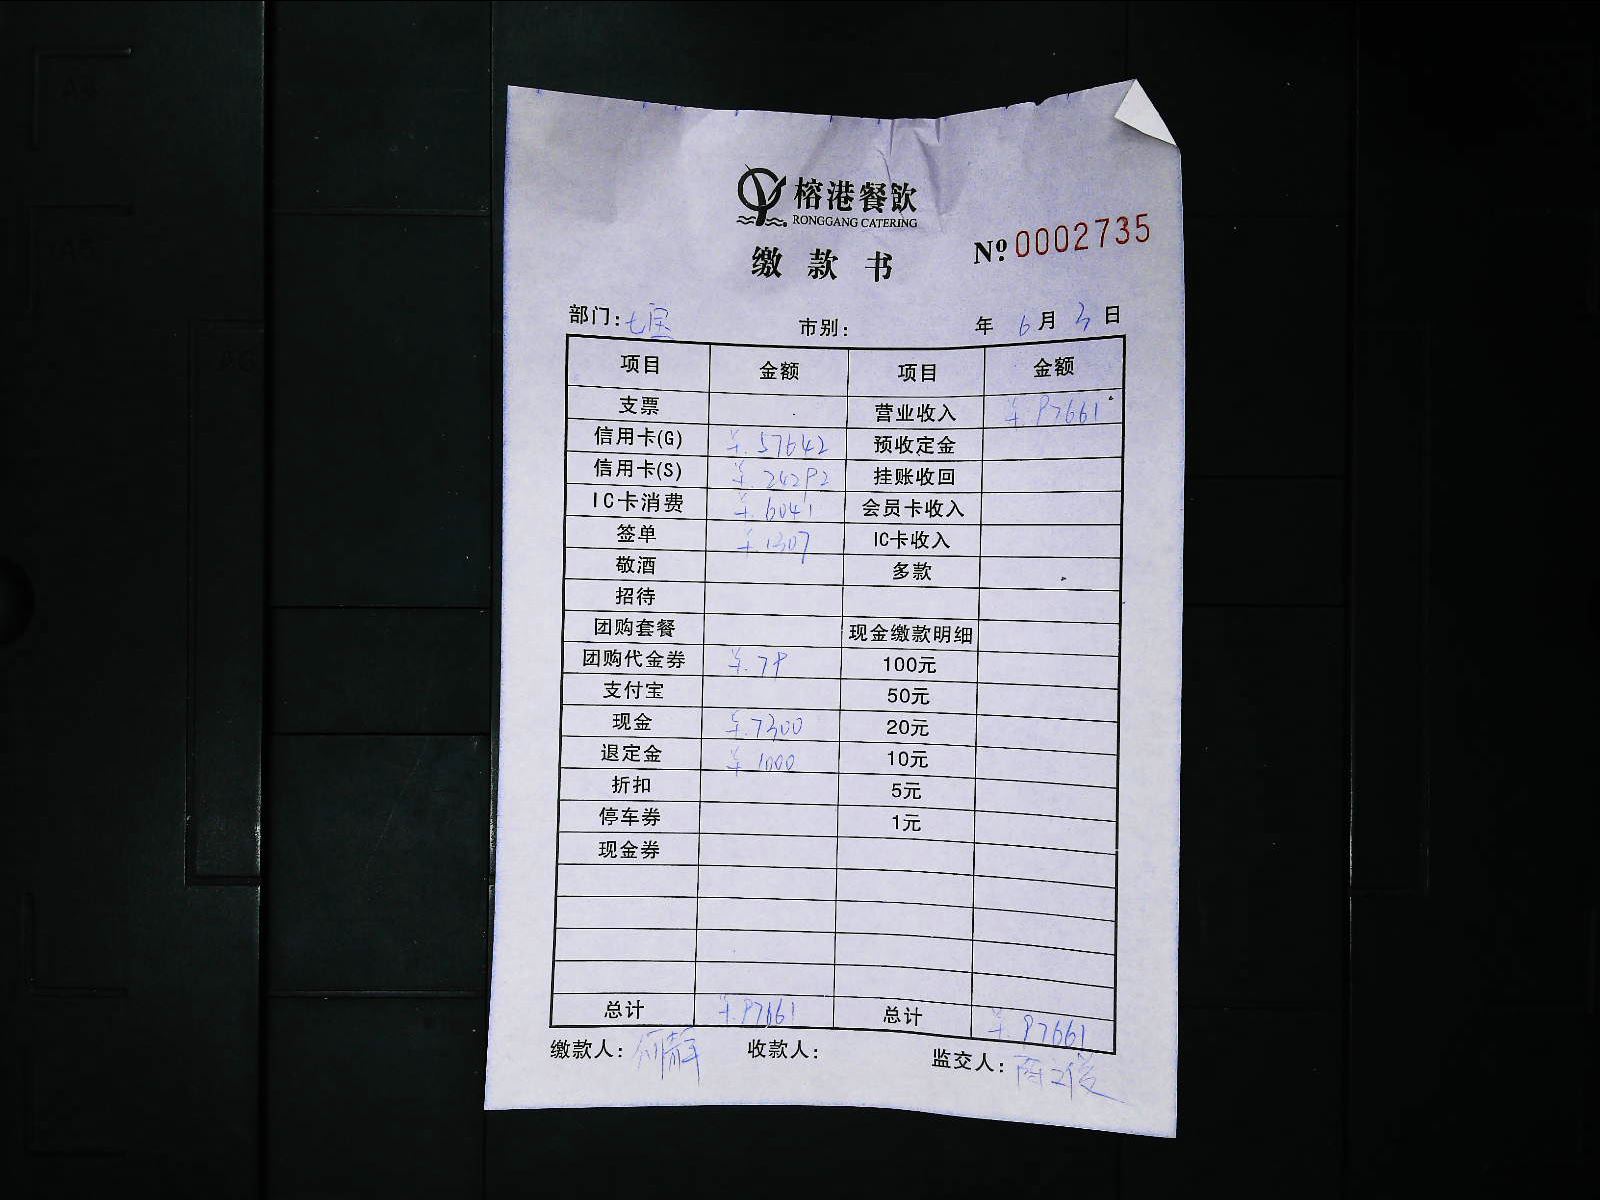 榕港餐飲
RONGGANG CATERING
缴款书
Nº 0002735
部门: 七宝 市别: 年 6月 3日
项目 金额 项目 金额
支票 营业收入 ¥.97661
信用卡(G) ¥.57642 预收定金
信用卡(S) ¥.24292 挂账收回
IC卡消费 ¥.6041 会员卡收入
签单 ¥1307 IC卡收入
敬酒 多款
招待
团购套餐 现金缴款明细
团购代金券 ¥.79 100元
支付宝 50元
现金 ¥.7300 20元
退定金 ¥1000 10元
折扣 5元
停车券 1元
现金券
总计 ¥.97661 总计 ¥.97661
缴款人: 收款人: 监交人: